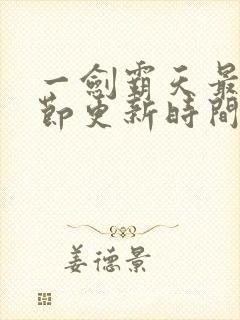 一劍霸天最
節更新時間
姜德景